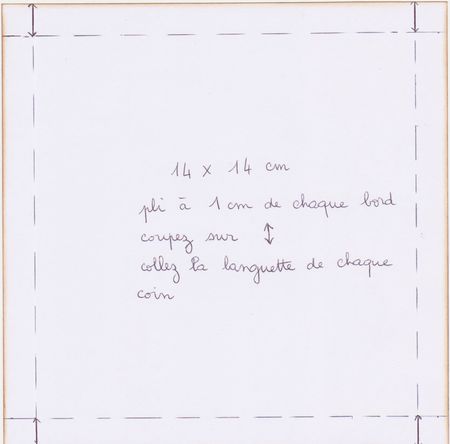 14 x 14 cm
pli à 1 cm de chaque bord
coupez sur ↕
collez la languette de chaque
coin